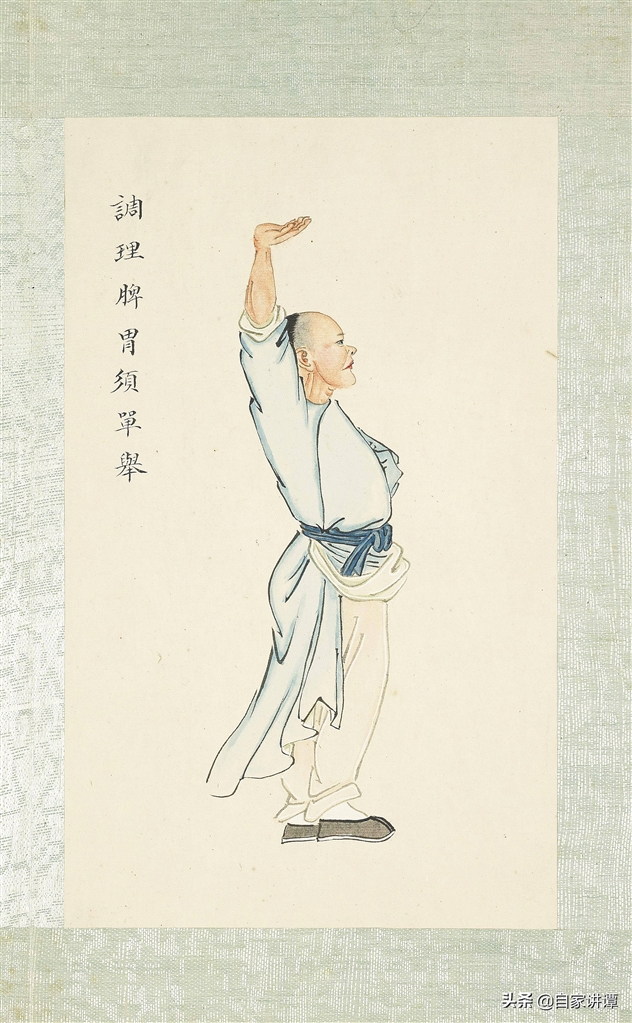 調理脾胃須單舉
头条 @自家讲谭